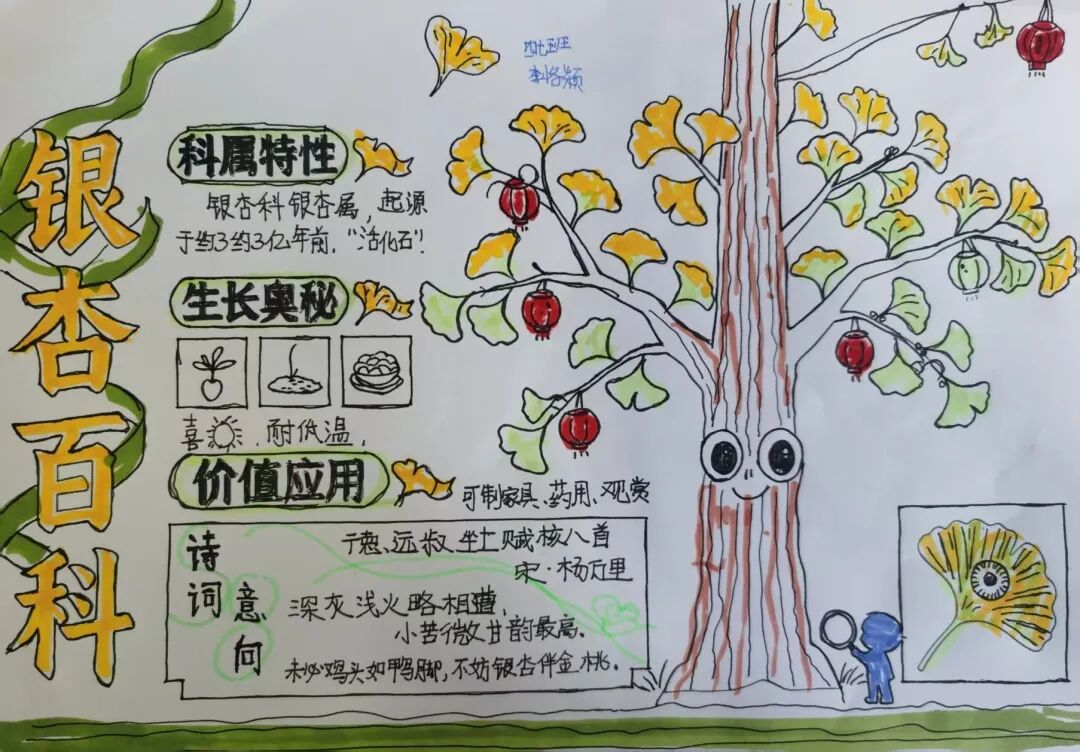 银杏百科
李恪颖
科属特性
银杏科银杏属，起源
于约3约3亿年前，“活化石”！
生长奥秘
喜 、耐低温，
价值应用
可制家具、药用、观赏
诗词意向
德远叔坐上赋核八首
宋·杨万里
深灰浅火略相遭，
小苦微甘韵最高。
未必鸡头如鸭脚，不妨银杏伴金桃。